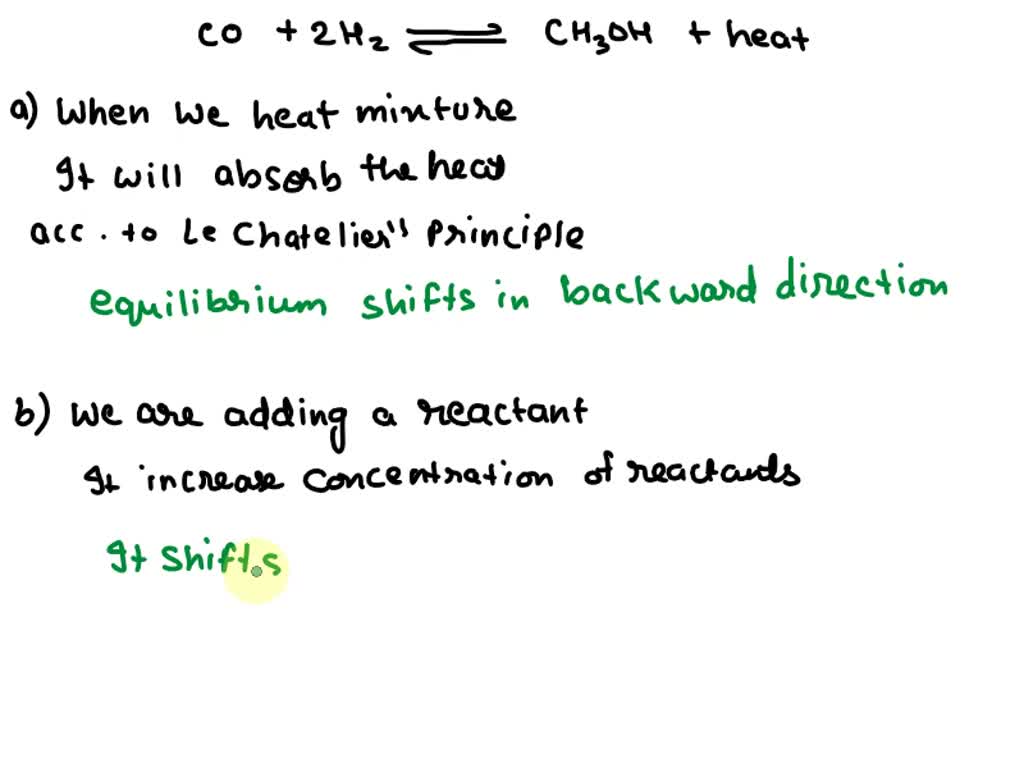 CO + 2H₂ ⇌ CH₃OH + heat
a) When we heat minture
It will absorb the heat
acc. to Le Chatelier's Principle
equilibrium shifts in backward direction
b) We are adding a reactant
It increase concentration of reactants
It shifts